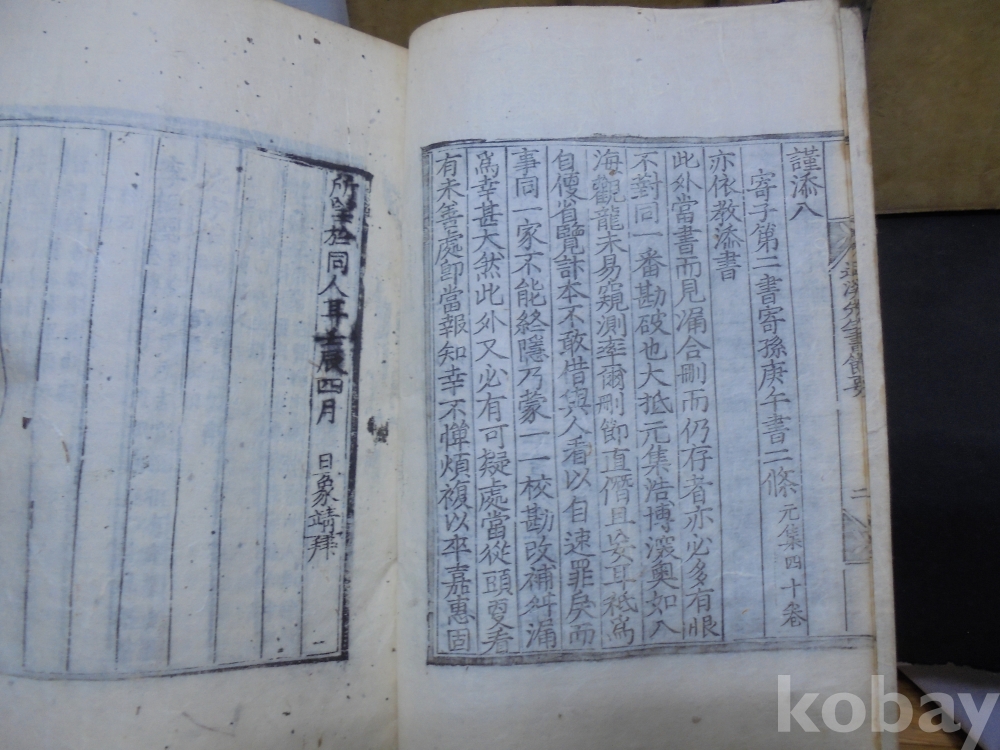 謹添入
寄子第二書寄孫庚午書二條 元集四十卷
亦依教添書
此外當書而見漏合刪而仍存者亦必多有眼
不對同一番勘破也大抵元集浩博濶奧如入
海觀龍未易窺測率爾刪節直僭且妄耳秪爲
自便省覽計本不敢借與人看以自速罪戾而
事同一家不能終隱乃蒙一一校勘改補紕漏
爲幸甚大然此外又必有可疑處當從頭更看
有未善處卽當報知幸不憚煩複以卒嘉惠固
所望於同人耳壬辰四月 日象靖拜
退溪先生書節要
二
一
kobay